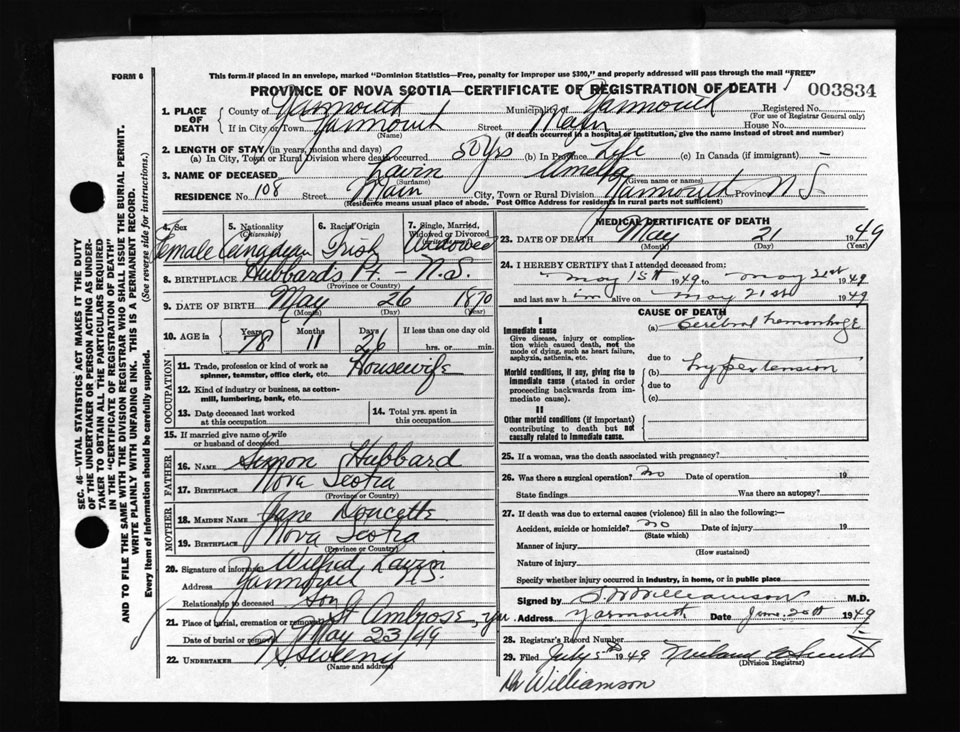 FORM 6
This form if placed in an envelope, marked "Dominion Statistics—Free, penalty for improper use $300," and properly addressed will pass through the mail "FREE"
PROVINCE OF NOVA SCOTIA—CERTIFICATE OF REGISTRATION OF DEATH
003834
1. PLACE OF DEATH County of Yarmouth Municipality of Yarmouth Registered No.
(For use of Registrar General only)
If in City or Town Yarmouth Street Main House No.
(Name) (If death occurred in a hospital or institution, give the name instead of street and number)
2. LENGTH OF STAY (in years, months and days)
(a) In City, Town or Rural Division where death occurred 50 yrs (b) In Province Life (c) In Canada (if immigrant) —
3. NAME OF DECEASED Lavin Amelia
(Surname) (Given name or names)
RESIDENCE No. 108 Street Main City, Town or Rural Division Yarmouth Province N S
(Residence means usual place of abode. Post Office Address for residents in rural parts not sufficient)
4. Sex Female
5. Nationality (Citizenship) Canadian
6. Racial Origin Irish
7. Single, Married, Widowed or Divorced
8. BIRTHPLACE Hubbards Pt. — N.S.
(Province or Country)
9. DATE OF BIRTH May 26 1870
(Month) (Day) (Year)
10. AGE in Years 78 Months 11 Days 26 If less than one day old
hrs. or min.
OCCUPATION
11. Trade, profession or kind of work as spinner, teamster, office clerk, etc. Housewife
12. Kind of industry or business, as cotton-mill, lumbering, bank, etc.
13. Date deceased last worked at this occupation
14. Total yrs. spent in this occupation
15. If married give name of wife or husband of deceased
FATHER
16. NAME Simon Hubbard
17. BIRTHPLACE Nova Scotia
(Province or Country)
MOTHER
18. MAIDEN NAME Jane Doucette
19. BIRTHPLACE Nova Scotia
(Province or Country)
20. Signature of informant Wilfred
Address Yarmouth N.S.
Relationship to deceased Son
21. Place of burial, cremation or removal St Ambrose, Yar
Date of burial or removal May 23/49
22. UNDERTAKER H Sweeny
(Name and address)
MEDICAL CERTIFICATE OF DEATH
23. DATE OF DEATH May 21 1949
(Month) (Day) (Year)
24. I HEREBY CERTIFY that I attended deceased from:
May 15th 1949 to May 21st 1949
and last saw h im alive on May 21st 1949
CAUSE OF DEATH
I
Immediate cause
Give disease, injury or complication which caused death, not the mode of dying, such as heart failure, asphyxia, asthenia, etc.
(a) Cerebral hemorrhage
due to
Morbid conditions, if any, giving rise to immediate cause (stated in order proceeding backwards from immediate cause).
(b) hypertension
due to
(c)
II
Other morbid conditions (if important) contributing to death but not causally related to immediate cause.
25. If a woman, was the death associated with pregnancy?
26. Was there a surgical operation? no Date of operation 19
State findings Was there an autopsy?
27. If death was due to external causes (violence) fill in also the following:—
Accident, suicide or homicide? no Date of injury 19
(State which)
Manner of injury
(How sustained)
Nature of injury
Specify whether injury occurred in industry, in home, or in public place
Signed by Williamson M.D.
Address Yarmouth Date June 20th 1949
28. Registrar's Record Number
29. Filed July 5th 1949
(Division Registrar)
Dr Williamson
SEC. 46—VITAL STATISTICS ACT MAKES IT THE DUTY
OF THE UNDERTAKER OR PERSON ACTING AS UNDER-
TAKER TO OBTAIN ALL THE PARTICULARS REQUIRED
IN THE "CERTIFICATE OF REGISTRATION OF DEATH"
AND TO FILE THE SAME WITH THE DIVISION REGISTRAR WHO SHALL ISSUE THE BURIAL PERMIT.
WRITE PLAINLY WITH UNFADING INK. THIS IS A PERMANENT RECORD.
Every item of information should be carefully supplied. (See reverse side for instructions.)